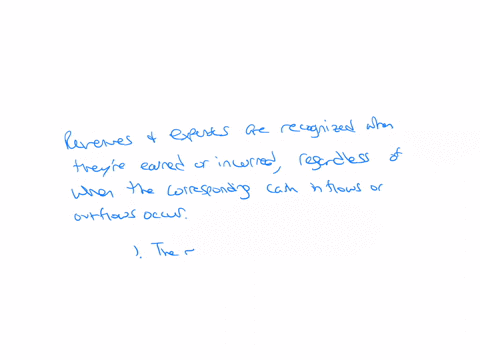 Revenues & expenses are recognized when
they're earned or incurred, regardless of
when the corresponding cash inflows or
outflows occur.
1. The r